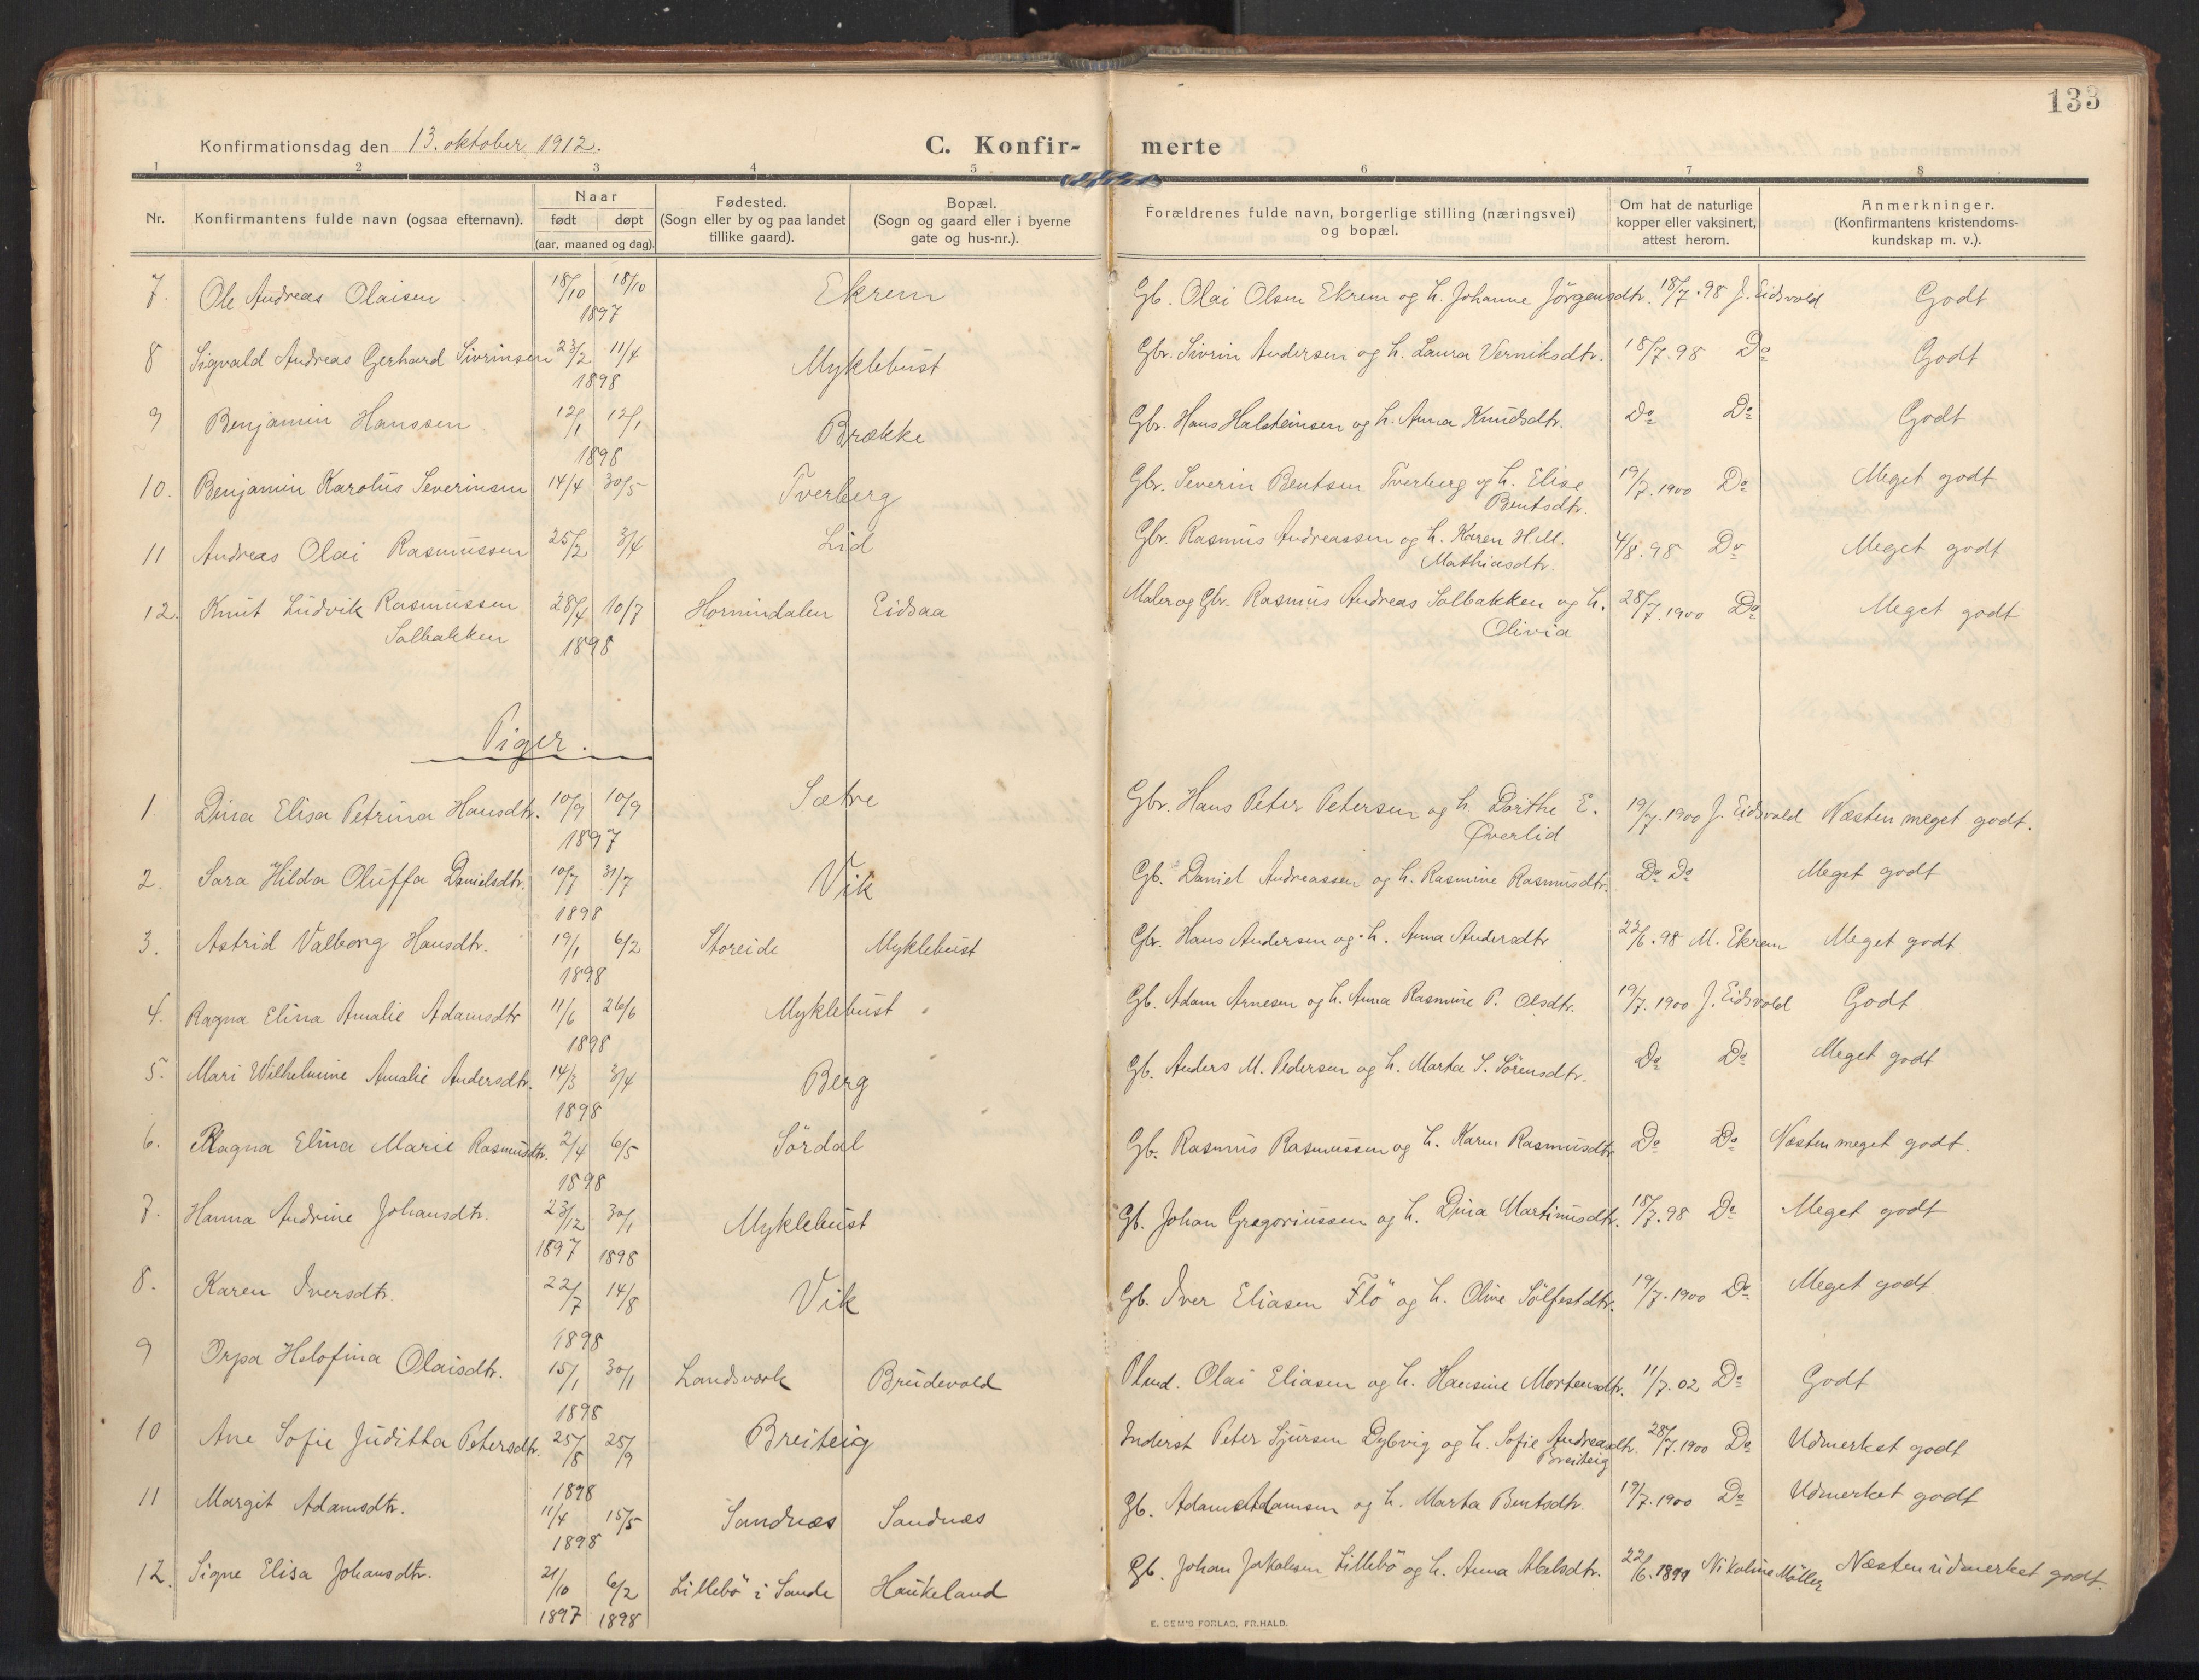 133
Konfirmationsdag den 13. oktober 1912.
C. Konfir- merte
1 2 3 4 5 6 7 8
Nr.
Konfirmantens fulde navn (ogsaa efternavn).
Naar
født døpt
(aar, maaned og dag).
Fødested.
(Sogn eller by og paa landet
tillike gaard).
Bopæl.
(Sogn og gaard eller i byerne
gate og hus-nr.).
Forældrenes fulde navn, borgerlige stilling (næringsvei)
og bopæl.
Om hat de naturlige
kopper eller vaksinert,
attest herom.
Anmerkninger.
(Konfirmantens kristendoms-
kundskap m. v.).
7. Ole Andreas Olaisen 18/10 18/10 Ekrem Gb. Olai Olsen Ekrem og h. Johanne Jörgensdtr. 18/7.98 J. Eidsvold Godt
1897
8 Sigvald Andreas Gerhard Sivrinsen 23/2 11/4 Myklebust Gbr. Sivrin Andersen og h. Laura Verniksdtr. 18/7.98 Do Godt
1898
9 Benjamin Hanssen 12/1 12/1 Brække Gbr. Hans Halsteinsen og h. Anna Knudsdtr. Do Do Godt
1898
10. Benjamin Karolus Severinsen 14/4 30/5 Tverberg Gbr. Severin Bentsen Tverberg og h. Elise 19/7.1900 Do Meget godt
Bentsdtr.
11 Andreas Olai Rasmussen 25/2 3/4 Lid Gbr. Rasmus Andreassen og h. Karen H.M. 4/8.98 Do Meget godt
Mathiasdtr.
12. Knut Ludvik Rasmussen 28/4 10/7 Hornindalen Eidsaa Maler og Gbr. Rasmus Andreas Solbakken og h. 28/7.1900 Do Meget godt
Solbakken 1898 Olivia
Piger.
1 Dina Elisa Petrina Hansdtr. 10/9 10/9 Sætre Gbr. Hans Peter Petersen og h. Dorthe E. 19/7.1900 J. Eidsvold Næsten meget godt.
1897 Øverlid
2. Sara Hilda Oluffa Danielsdtr. 10/7 31/7 Vik Gb. Daniel Andreassen og h. Rasmine Rasmusdtr. Do Do Meget godt
1898
3. Astrid Valborg Hansdtr. 19/1 6/2 Storeide Myklebust Gbr. Hans Andersen og h. Anna Andersdtr 22/6.98 M. Ekrem Meget godt
1898
4. Ragna Elina Amalie Adamsdtr 11/6 26/6 Myklebust Gb. Adam Arnesen og h. Anna Rasmine P. Olsdtr. 19/7.1900 J. Eidsvold Godt
1898
5. Mari Wilhelmine Amalie Andersdtr. 14/3 3/4 Berg Gb. Anders M. Pedersen og h. Marta S. Sörensdtr. Do Do Meget godt
1898
6. Ragna Elina Marie Rasmusdtr. 2/4 6/5 Sördal Gb. Rasmus Rasmussen og h. Karen Rasmusdtr Do Do Næsten meget godt.
1898
7. Hanna Andrine Johansdtr. 23/12 30/1 Myklebust Gb. Johan Gregoriussen og h. Dina Martinusdtr. 18/7.98 Do Meget godt
1897 1898
8. Karen Iversdtr. 22/7 14/8 Vik Gb. Iver Eliasen Flö og h. Oline Sölfestdtr. 19/7.1900 Do Meget godt
1898
9 Orpa Helofina Olaisdtr. 15/1 30/1 Landsverk Brudevold Plmd. Olai Eliasen og h. Hansine Mortensdtr. 11/7.02 Do Godt
1898
10 Ane Sofie Juditta Petersdtr. 25/8 25/9 Breiteig Inderst Peter Sjursen Dybvig og h. Sofie Andreasdtr. 28/7.1900 Do Udmerket godt
1898 Breiteig
11 Margit Adamsdtr. 11/4 15/5 Sandnæs Sandnæs Gb. Adam Adamsen og h. Marta Bentsdtr. 19/7.1900 Do Udmerket godt
1898
12. Signe Elisa Johansdtr. 21/10 6/2 Lillebö i Sande Haukeland Gb. Johan Jakobsen Lillebö og h. Anna Abelsdtr. 22/6.1899 Nikoline Möller Næsten udmerket godt.
1897 1898
E. SEM'S FORLAG, FR.HALD.